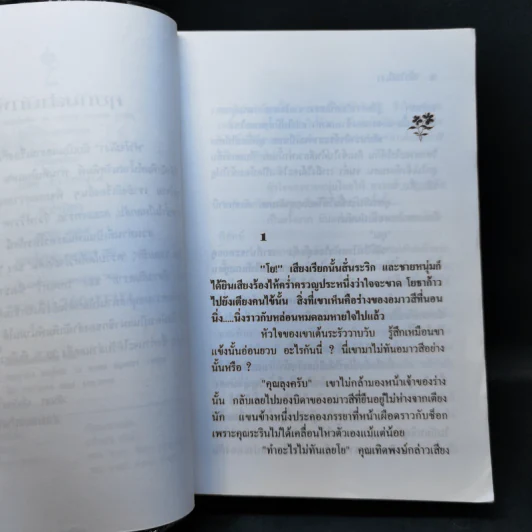 1
"โย!" เสียงเรียกนั้นสั่นระริก และชายหนุ่มก็
ได้ยินเสียงร้องไห้คร่ำครวญประหนึ่งว่าใจจะขาด โยธาก้าว
ไปยังเตียงคนไข้นั้น สิ่งที่เขาเห็นคือร่างของอมาวสีที่นอน
นิ่ง....นิ่งราวกับหล่อนหมดลมหายใจไปแล้ว
หัวใจของเขาเต้นระรัววาบวับ รู้สึกเหมือนขา
แข้งนั้นอ่อนยวบ อะไรกันนี่ ? นี่เขามาไม่ทันอมาวสีอย่าง
นั้นหรือ ?
"คุณลุงครับ" เขาไม่กล้ามองหน้าเจ้าของร่าง
นั้น กลับเลยไปมองบิดาของอมาวสีที่ยืนอยู่ไม่ห่างจากเตียง
นัก แขนข้างหนึ่งประคองภรรยาที่หน้าเผือดราวกับช็อก
เพราะคุณระรินไม่ได้เคลื่อนไหวตัวเองแม้แต่น้อย
"ทำอะไรไม่ทันเลยโย" คุณเทิดพงษ์กล่าวเสียง